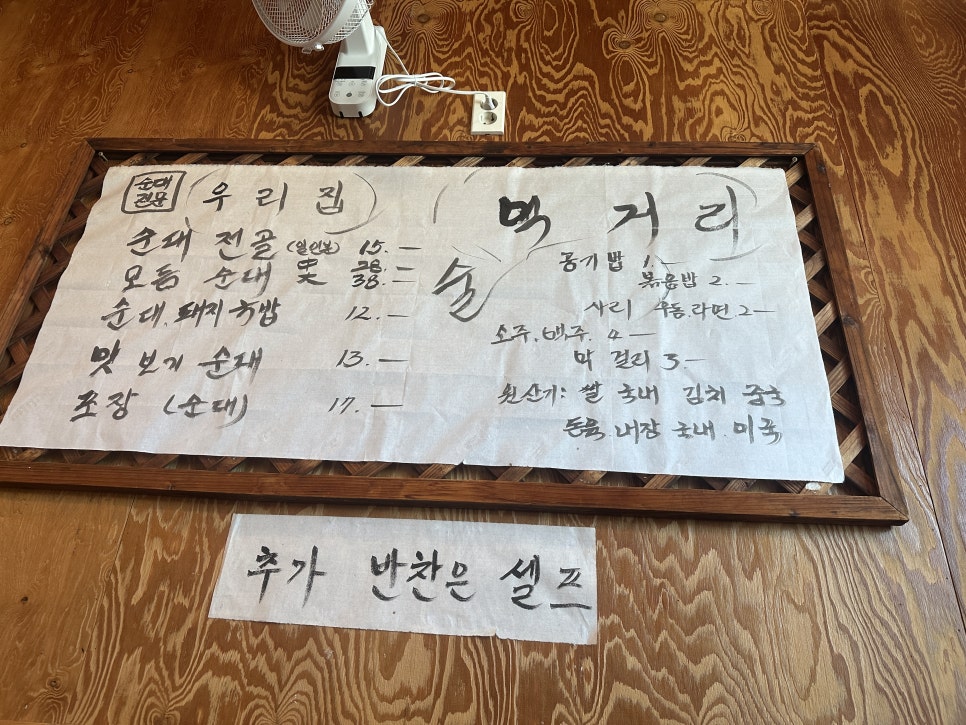 순대
전문
우리집
먹거리
순대 전골 (일인분) 15.—
모듬 순대 中 28.—
大 38.—
순대.돼지국밥 12.—
맛보기 순대 13.—
포장 (순대) 17.—
술
공기밥 1.—
볶음밥 2.—
사리 우동.라면 2—
소주.맥주. 4—
막걸리 3—
원산지: 쌀 국내 김치 중국
돈육.내장 국내.미국
추가 반찬은 셀프